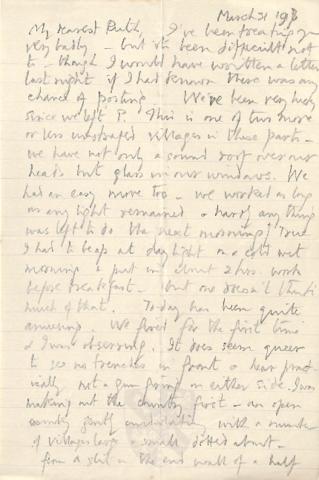 March 31 19
My nearest Dutch, I've been treating you
very badly – but it's been difficult not
to – though I would have written a letter
last night if I had known there was any
chance of posting. We've been very busy
since we left P. This is one of two more
or less unshaped villages in these parts –
we have not only a sound roof over our
heads but glass in our windows. We
had an easy move too – we worked as long
as any light remained & hardly anything
was left to do the next morning. True
I had to be up at daylight on a cold wet
morning & put in about 2 hrs. work
before breakfast – but one doesn't think
much of that. Today has been quite
amusing. We fired for the first time
& I was observing. It does seem queer
to see no trenches in front & hear pract-
ically not a gun going on either side. I was
making out the country first – an open
country gently undulating with a number
of villages large & small dotted about –
from a slit in the end wall of a half